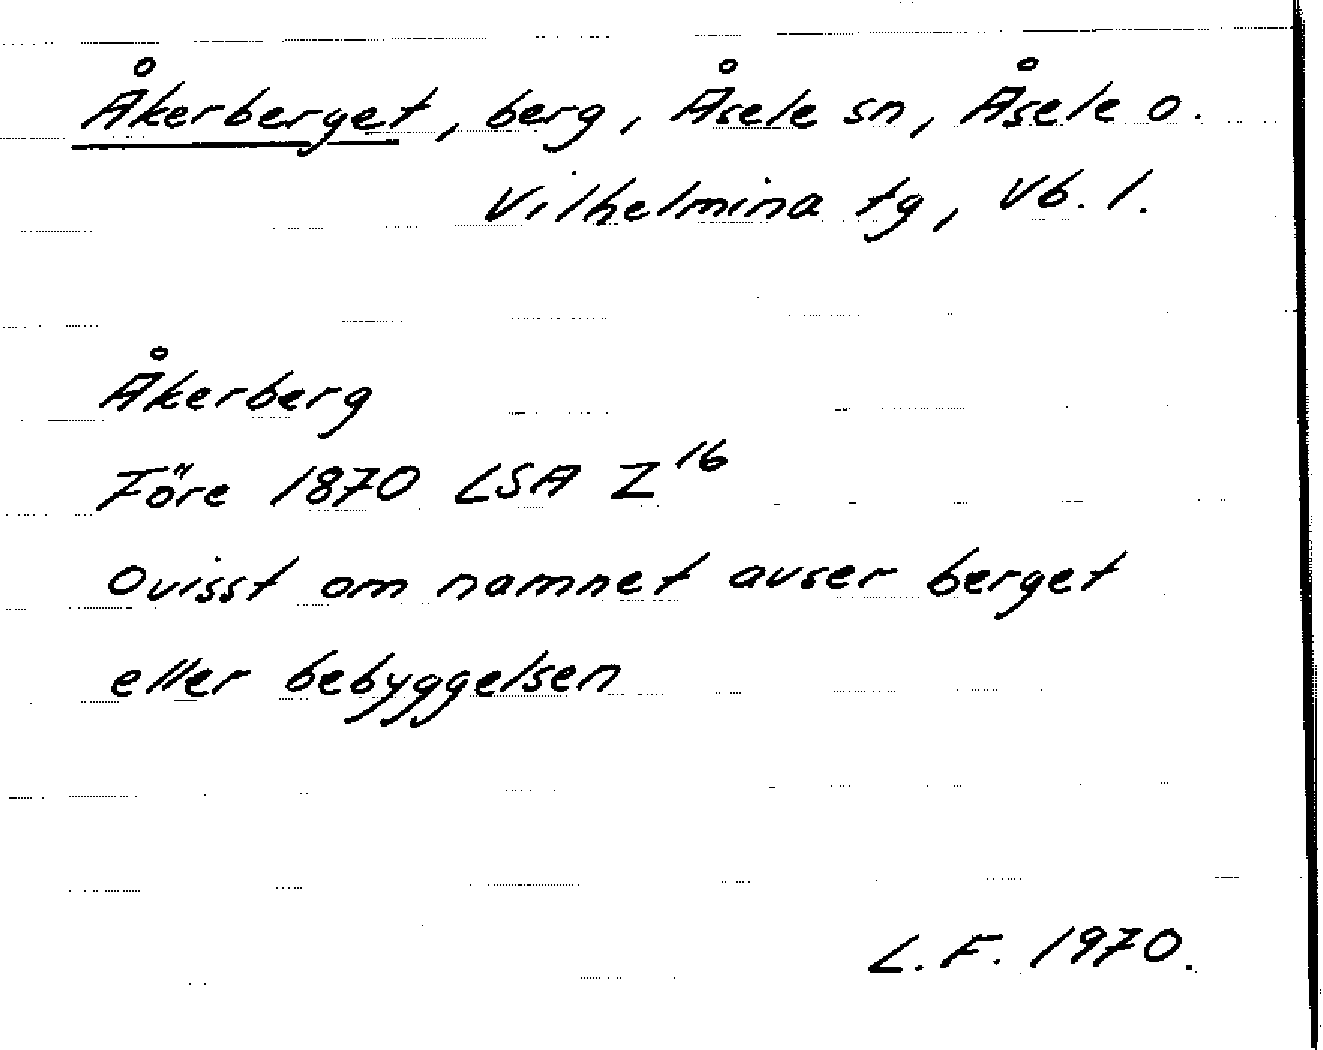 Åkerberget, berg, Åsele sn, Åsele o.
Vilhelmina tg, Vb. l.
Åkerberg
Före 1870 LSA Z¹⁶
Ovisst om namnet avser berget
eller bebyggelsen
L. F. 1970.